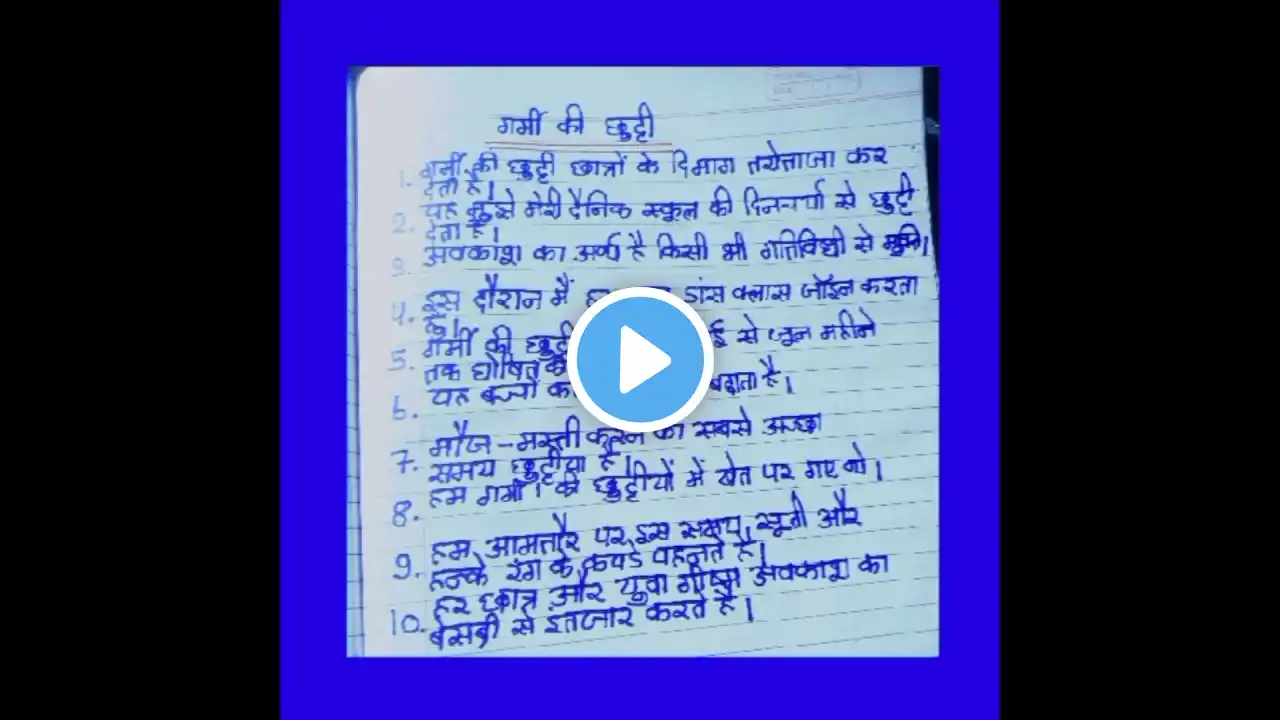 गर्मी की छुट्टी
1. गर्मी की छुट्टी छात्रों के दिमाग तरोताजा कर
देता है।
2. यह मुझे मेरी दैनिक स्कूल की दिनचर्या से छुट्टी
देता है।
3. अवकाश का अर्थ है किसी भी गतिविधी से मुक्ति।
4. इस दौरान मैं डांस क्लास जॉइन करता
हूं।
5. गर्मी की छुट्टी से जून महीने
तक घोषित
6. यह बच्चों का बढ़ाता है।
7. मौज-मस्ती करने का सबसे अच्छा
समय छुट्टीया है।
8. हम गर्मी की छुट्टीयों में खेत पर गए थे।
9. हम आमतौर पर इस समय, सूती और
हल्के रंग के कपड़े पहनते है।
10. हर छात्र और युवा ग्रीष्म अवकाश का
बेसब्री से इतजार करते है।